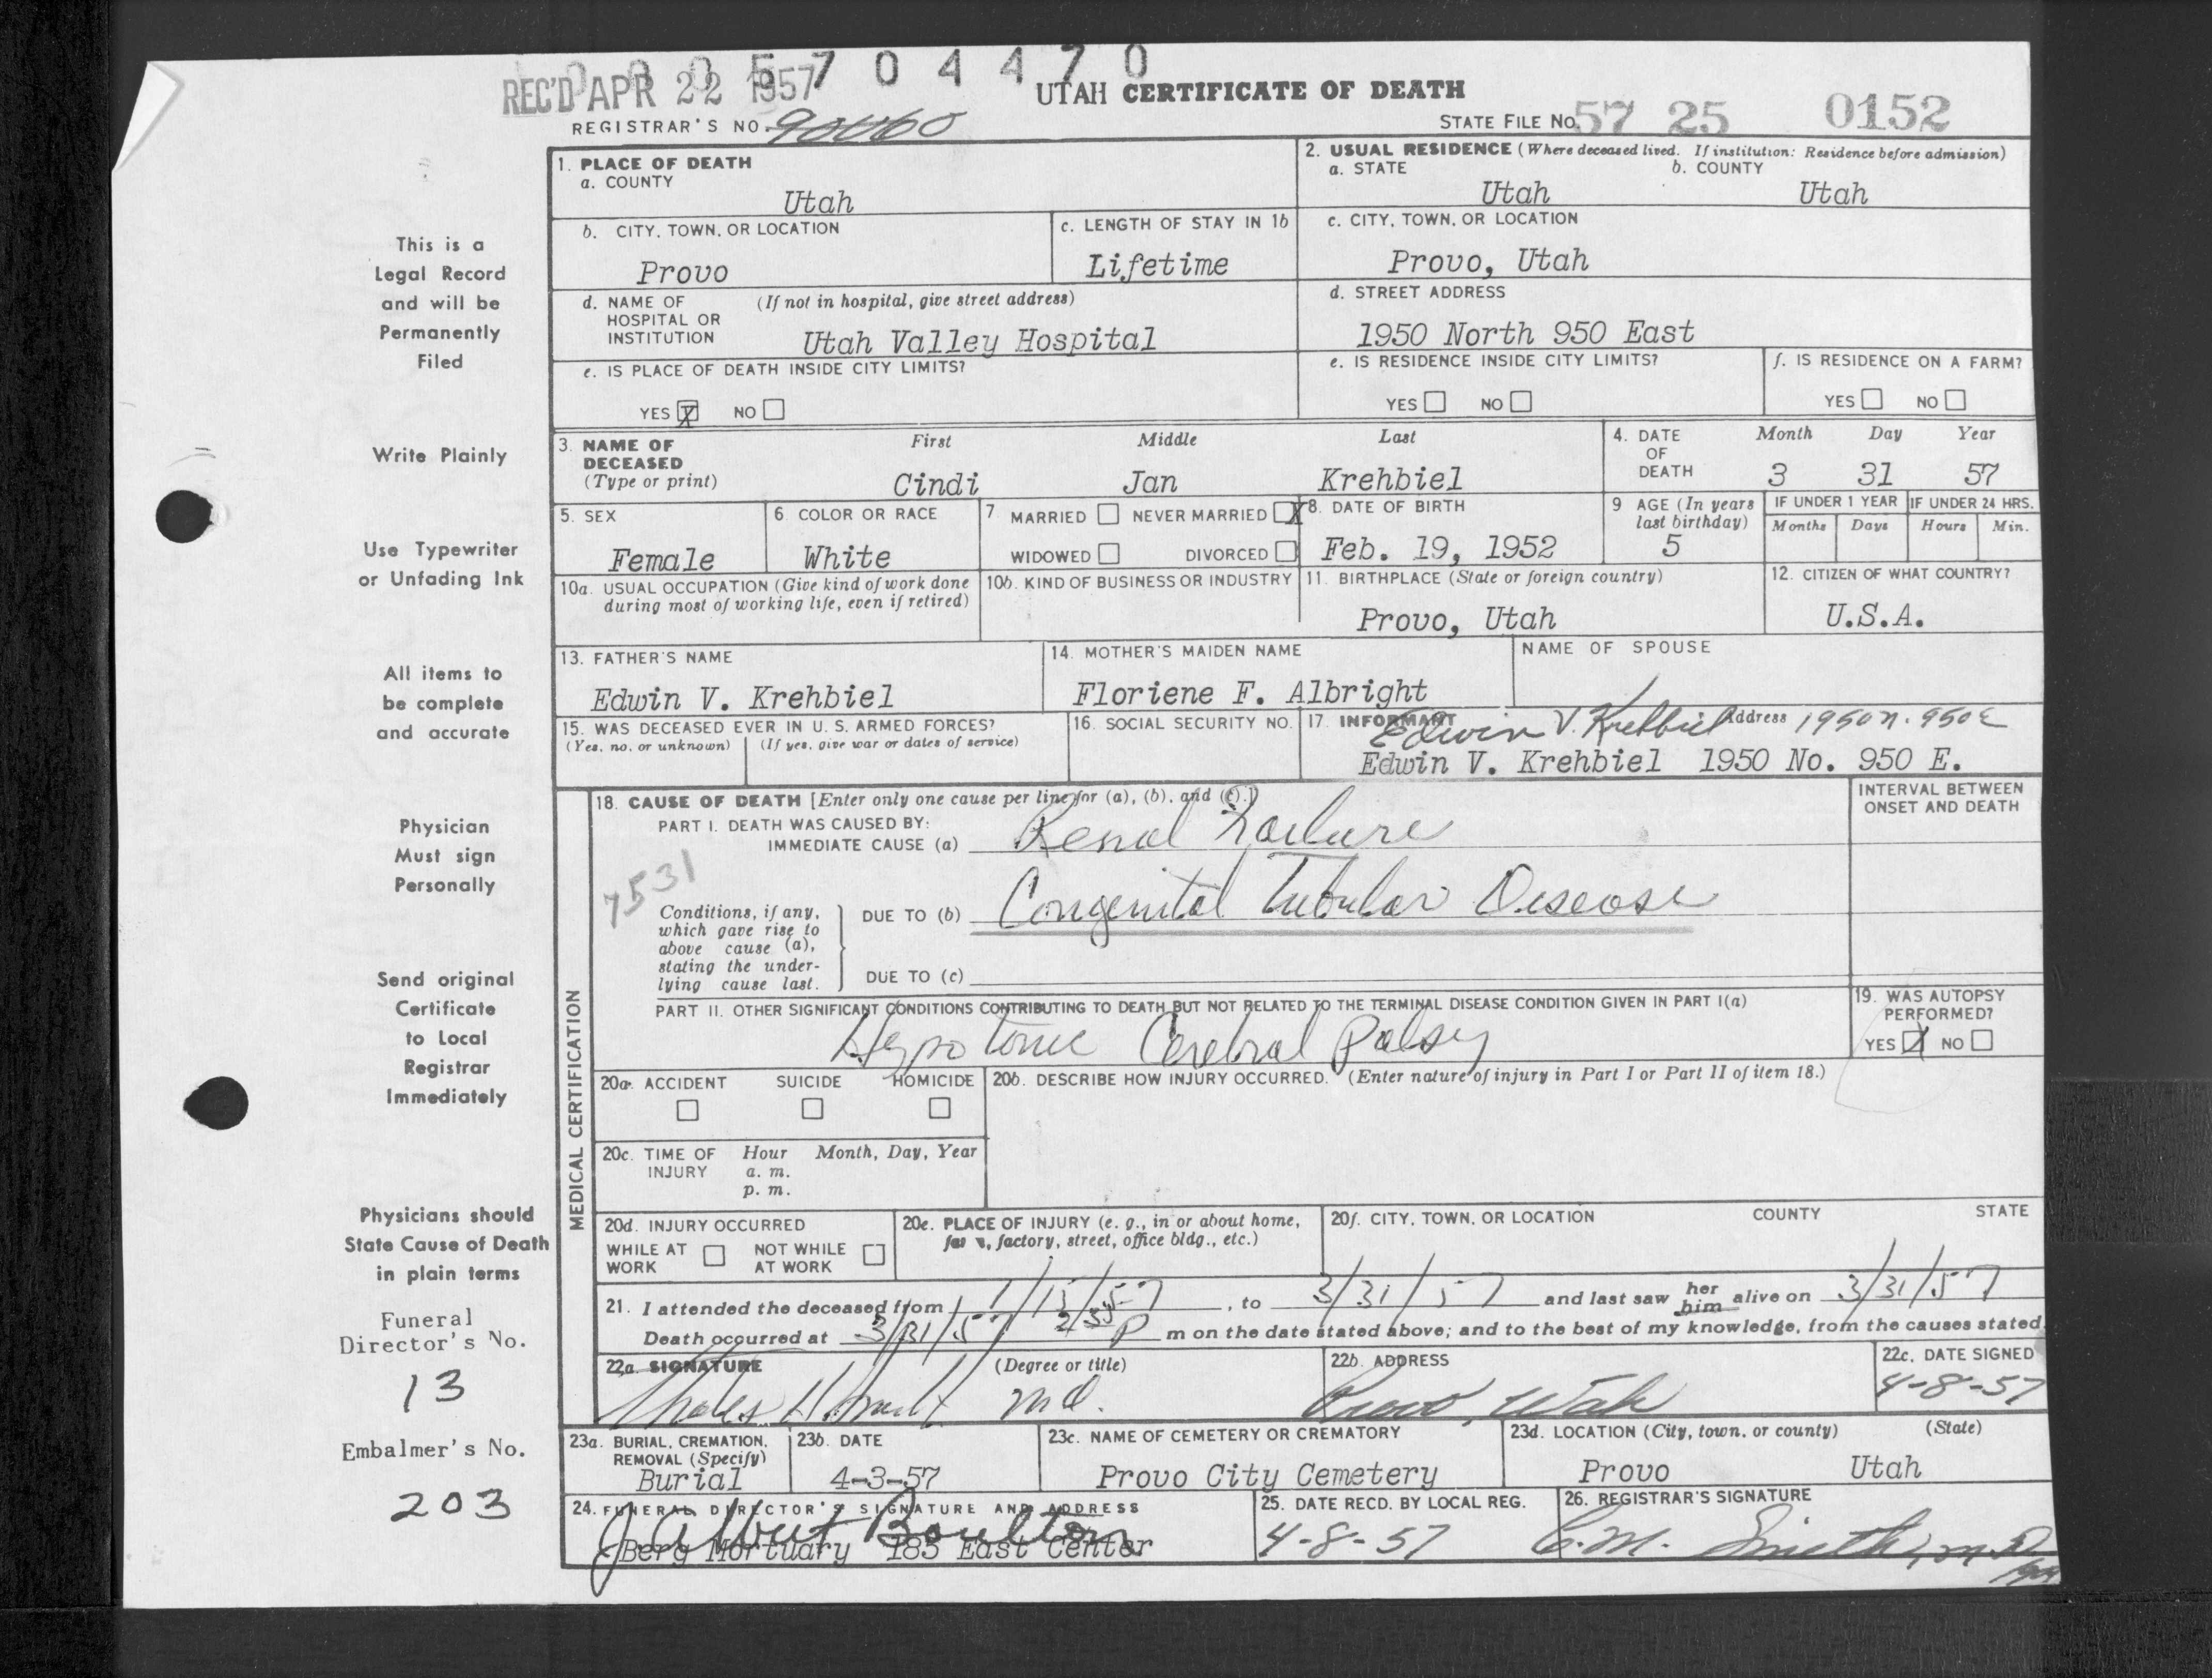 0 0 0 5 7 0 4 4 7 0
REC'D APR 22 1957
UTAH CERTIFICATE OF DEATH
REGISTRAR'S NO.
STATE FILE No. 57 25 0152
This is a Legal Record and will be Permanently Filed
1. PLACE OF DEATH
a. COUNTY
Utah
2. USUAL RESIDENCE (Where deceased lived. If institution: Residence before admission)
a. STATE b. COUNTY
Utah Utah
b. CITY, TOWN, OR LOCATION
Provo
c. LENGTH OF STAY IN 1b
Lifetime
c. CITY, TOWN, OR LOCATION
Provo, Utah
d. NAME OF HOSPITAL OR INSTITUTION (If not in hospital, give street address)
Utah Valley Hospital
d. STREET ADDRESS
1950 North 950 East
e. IS PLACE OF DEATH INSIDE CITY LIMITS?
YES X NO
e. IS RESIDENCE INSIDE CITY LIMITS?
YES NO
f. IS RESIDENCE ON A FARM?
YES NO
Write Plainly
3. NAME OF DECEASED (Type or print)
First Middle Last
Cindi Jan Krehbiel
4. DATE OF DEATH
Month Day Year
3 31 57
Use Typewriter or Unfading Ink
5. SEX
Female
6. COLOR OR RACE
White
7 MARRIED NEVER MARRIED X
WIDOWED DIVORCED
8. DATE OF BIRTH
Feb. 19, 1952
9 AGE (In years last birthday)
5
IF UNDER 1 YEAR
Months Days
IF UNDER 24 HRS.
Hours Min.
10a. USUAL OCCUPATION (Give kind of work done during most of working life, even if retired)
10b. KIND OF BUSINESS OR INDUSTRY
11. BIRTHPLACE (State or foreign country)
Provo, Utah
12. CITIZEN OF WHAT COUNTRY?
U.S.A.
All items to be complete and accurate
13. FATHER'S NAME
Edwin V. Krehbiel
14. MOTHER'S MAIDEN NAME
Floriene F. Albright
NAME OF SPOUSE
15. WAS DECEASED EVER IN U. S. ARMED FORCES?
(Yes, no, or unknown) (If yes, give war or dates of service)
16. SOCIAL SECURITY NO.
17. INFORMANT Address
Edwin V. Krehbiel 1950 N. 950 E
Edwin V. Krehbiel 1950 No. 950 E.
Physician Must sign Personally
MEDICAL CERTIFICATION
18. CAUSE OF DEATH [Enter only one cause per line for (a), (b), and (c).]
PART I. DEATH WAS CAUSED BY:
IMMEDIATE CAUSE (a) Renal Failure
INTERVAL BETWEEN ONSET AND DEATH
7531
Conditions, if any, which gave rise to above cause (a), stating the underlying cause last.
DUE TO (b) Congenital Tubular Disease
DUE TO (c)
Send original Certificate to Local Registrar Immediately
PART II. OTHER SIGNIFICANT CONDITIONS CONTRIBUTING TO DEATH BUT NOT RELATED TO THE TERMINAL DISEASE CONDITION GIVEN IN PART I(a)
Hypotonic Cerebral Palsy
19. WAS AUTOPSY PERFORMED?
YES X NO
20a. ACCIDENT SUICIDE HOMICIDE
20b. DESCRIBE HOW INJURY OCCURRED. (Enter nature of injury in Part I or Part II of item 18.)
20c. TIME OF INJURY
Hour Month, Day, Year
a. m.
p. m.
Physicians should State Cause of Death in plain terms
20d. INJURY OCCURRED
WHILE AT WORK NOT WHILE AT WORK
20e. PLACE OF INJURY (e. g., in or about home, farm, factory, street, office bldg., etc.)
20f. CITY, TOWN, OR LOCATION COUNTY STATE
21. I attended the deceased from 1/15/57, to 3/31/57 and last saw her him alive on 3/31/57
Death occurred at 3/31/57 P m on the date stated above; and to the best of my knowledge, from the causes stated.
Funeral Director's No.
13
22a. SIGNATURE (Degree or title)
M.D.
22b. ADDRESS
Provo, Utah
22c. DATE SIGNED
4-8-57
Embalmer's No.
203
23a. BURIAL, CREMATION, REMOVAL (Specify)
Burial
23b. DATE
4-3-57
23c. NAME OF CEMETERY OR CREMATORY
Provo City Cemetery
23d. LOCATION (City, town, or county) (State)
Provo Utah
24. FUNERAL DIRECTOR'S SIGNATURE AND ADDRESS
J Albert Boulton
Berg Mortuary 185 East Center
25. DATE RECD. BY LOCAL REG.
4-8-57
26. REGISTRAR'S SIGNATURE
C.M. Smith, M.D.